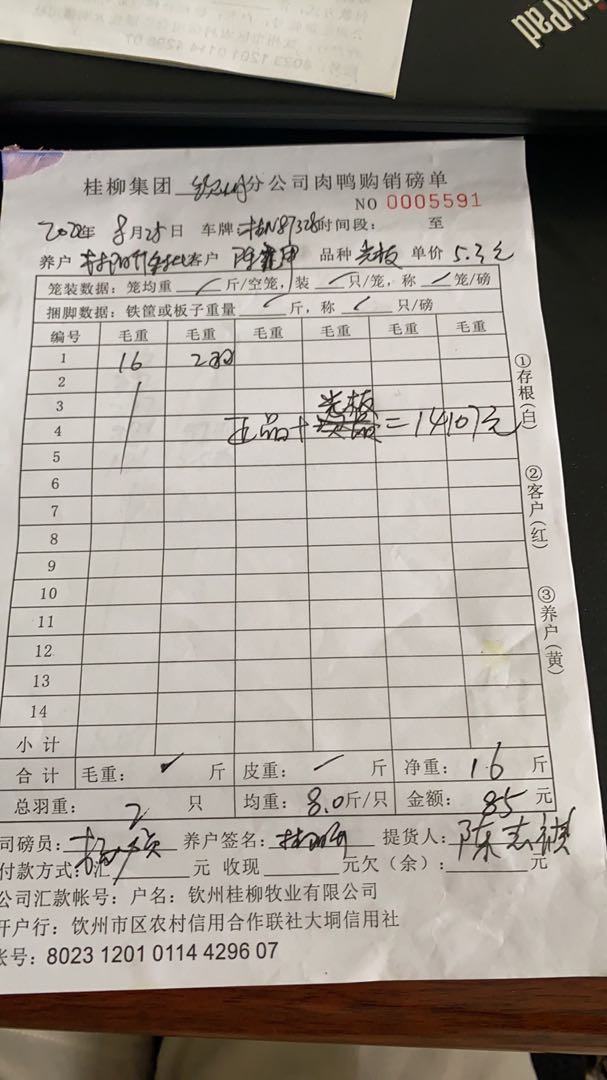 8023 1201 0114 4296 07
桂柳集团 钦州分公司肉鸭购销磅单
NO 0005591
2022年 8月25日 车牌:桂N87328时间段: 至
养户 客户 品种 光板 单价 5.3元
笼装数据:笼均重 斤/空笼,装 只/笼,称 笼/磅
捆脚数据:铁筐或板子重量 斤,称 只/磅
编号 毛重 毛重 毛重 毛重 毛重 毛重
1 16 2羽
2
3 光板
4 正品+ =14107元
5
6
7
8
9
10
11
12
13
14
小计
合计 毛重: 斤 皮重: 斤 净重: 16 斤
总羽重: 2 只 均重: 8.0斤/只 金额: 85 元
司磅员: 养户签名: 提货人: 陈志祺
付款方式:汇 元 收现 元欠(余): 元
公司汇款帐号:户名:钦州桂柳牧业有限公司
开户行:钦州市区农村信用合作联社大垌信用社
账号:8023 1201 0114 4296 07
①存根(白)
②客户(红)
③养户(黄)